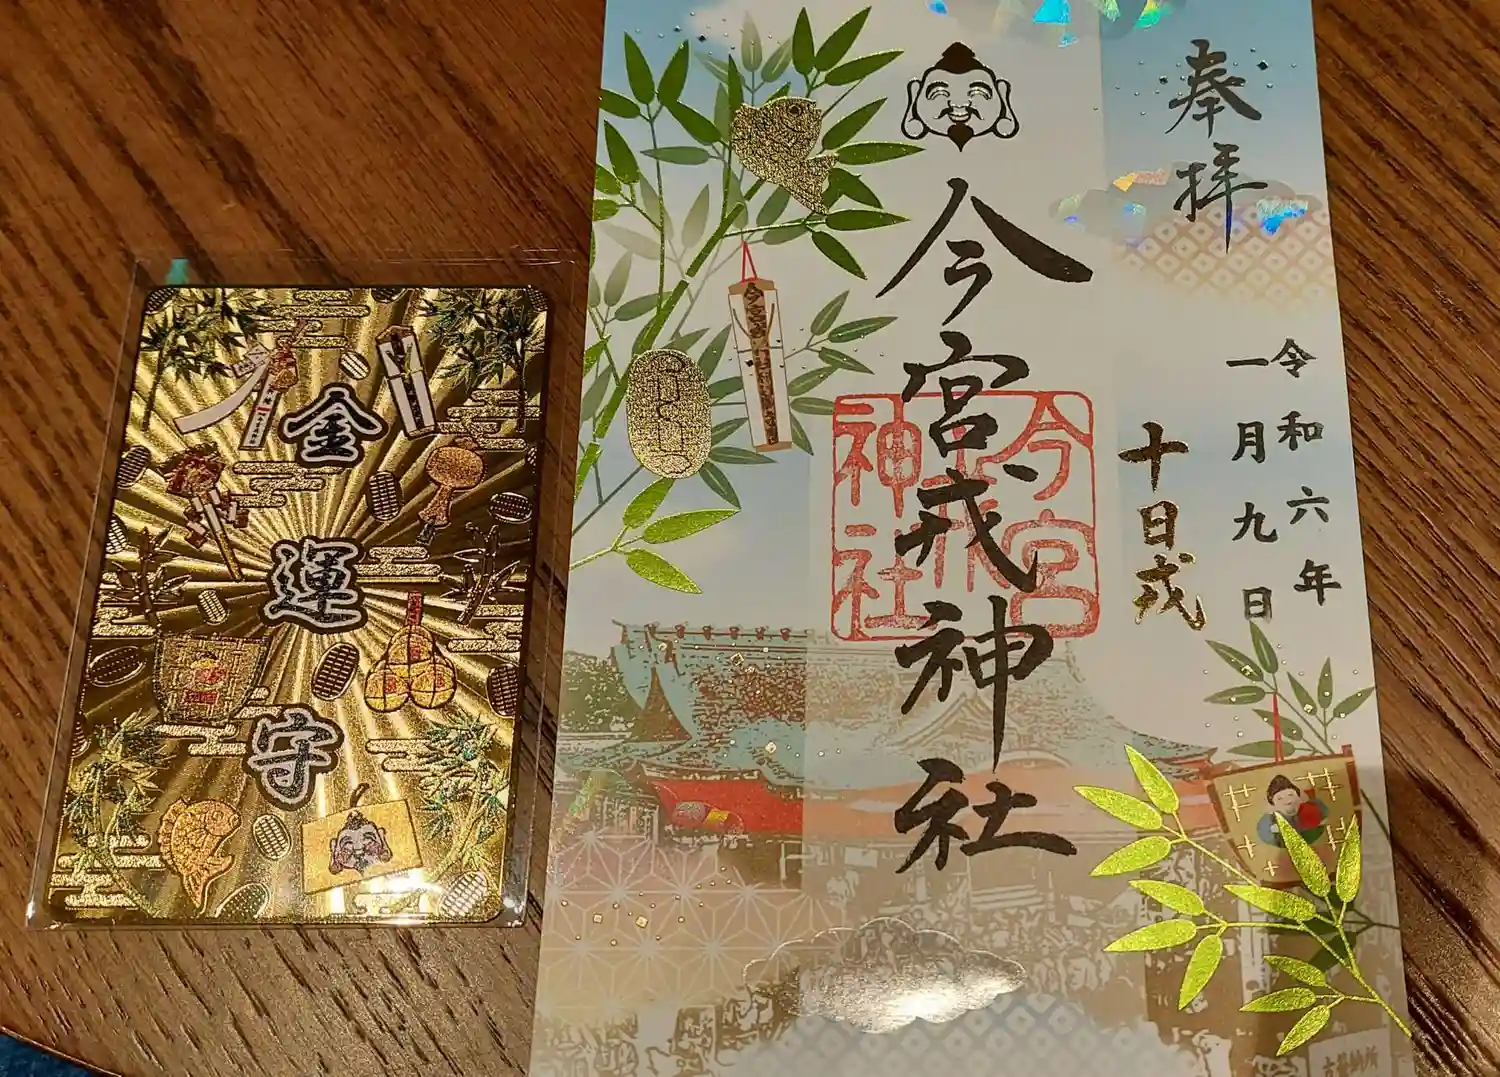 奉拝
令和六年
一月九日
十日戎
今宮戎神社
今宮
戎
神社
金運守